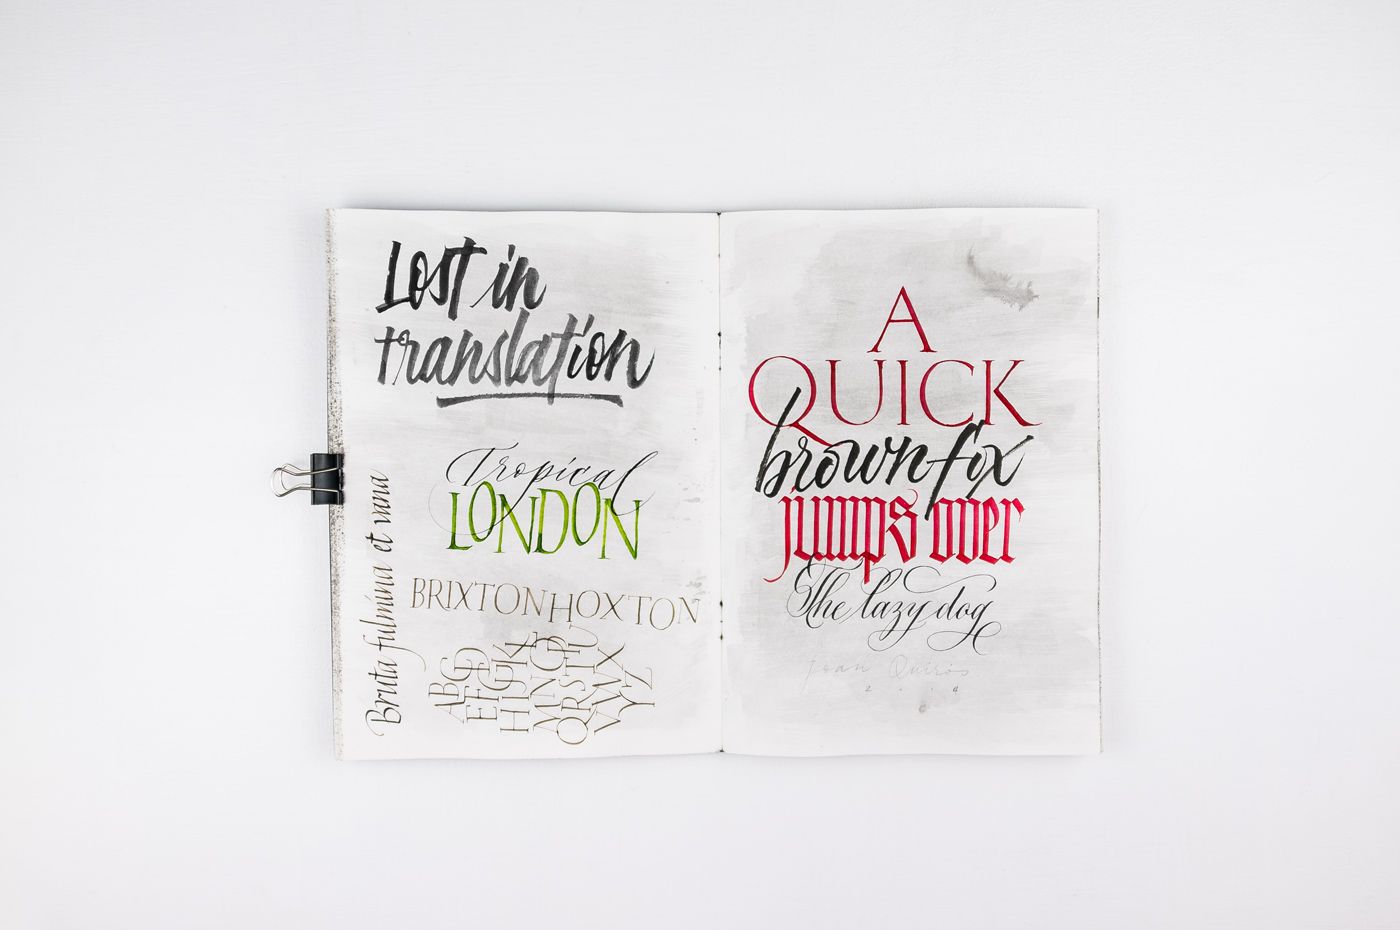 Lost in
translation
Tropical
LONDON
BRIXTON HOXTON
Bruta fulmina et vana
ABCD
EFGD
HIJKL
MNOP
QRSTU
VWX
YZ
A
QUICK
brown fox
jumps over
The lazy dog
Joan Quirós